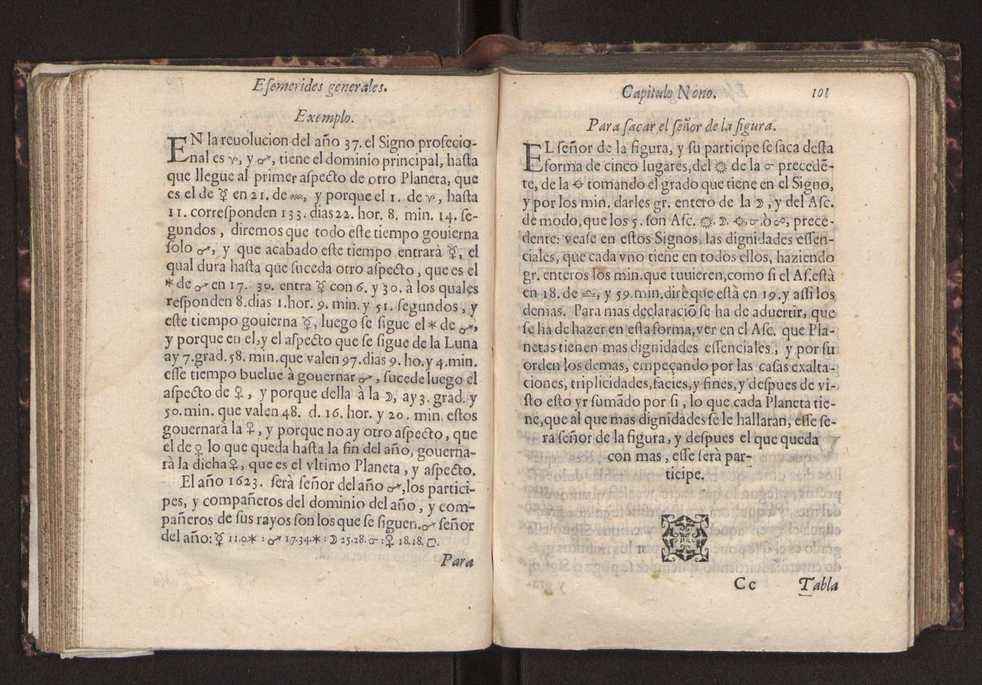 Eſemerides generales.
Exemplo.
EN la reuolucion del año 37. el Signo profecio-
nal es ♈, y ♂, tiene el dominio principal, haſta
que llegue al primer aſpecto de otro Planeta, que
es el de ☿ en 21. de ♒, y porque el 1. de ♈, haſta
11. correſponden 133. dias 22. hor. 8. min. 14. ſe-
gundos, diremos que todo eſte tiempo gouierna
ſolo ♂, y que acabado eſte tiempo entrarà ☿, el
qual dura haſta que ſuceda otro aſpecto, que es el
* de ♂ en 17. 30. entra ☿ con 6. y 30. à los quales
reſponden 8. dias 1. hor. 9. min. y 51. ſegundos, y
eſte tiempo gouierna ☿, luego ſe ſigue el * de ♂,
y porque en el, y el aſpecto que ſe ſigue de la Luna
ay 7. grad. 58. min. que valen 97. dias 9. ho. y 4. min.
eſſe tiempo buelue à gouernar ♂, ſucede luego el
aſpecto de ♀, y porque della à la ☽, ay 3. grad. y
50. min. que valen 48. d. 16. hor. y 20. min. eſtos
gouernarà la ♀, y porque no ay otro aſpecto, que
el de ♀ lo que queda haſta la fin del año, gouerna-
rà la dicha ♀, que es el vltimo Planeta, y aſpecto.
El año 1623. ſerà ſeñor del año ♂, los partici-
pes, y compañeros del dominio del año, y com-
pañeros de ſus rayos ſon los que ſe ſiguen. ♂ ſeñor
del año: ☿ 11.0.* : ♂ 17.34.* : ☽ 25.28. ☍ : ♀ 18.18. □.
Para
Capitulo Nono. 101
Para ſacar el ſeñor de la figura.
EL ſeñor de la figura, y ſu participe ſe ſaca deſta
forma de cinco lugares, del ☼ de la ☍ precedē-
te, de la ⊕ tomando el grado que tiene en el Signo,
y por los min. darles gr. entero de la ☽, y del Aſc.
de modo, que los 5. ſon Aſc. ☼. ☽. ⊕. ☌. ò ☍, prece-
dente: veaſe en eſtos Signos, las dignidades eſſen-
ciales, que cada vno tiene en todos ellos, haziendo
gr. enteros los min. que tuuieren, como ſi el Aſ. eſtà
en 18. de ♎, y 59. min. dirè que eſtà en 19. y aſſi los
demas. Para mas declaraciō ſe ha de aduertir, que
ſe ha de hazer en eſta forma, ver en el Aſc. que Pla-
netas tienen mas dignidades eſſenciales, y por ſu
orden los demas, empeçando por las caſas exalta-
ciones, triplicidades, facies, y fines, y deſpues de vi-
ſto eſto yr ſumādo por ſi, lo que cada Planeta tie-
ne, que al que mas dignidades ſe le hallaran, eſſe ſe-
ra ſeñor de la figura, y deſpues el que queda
con mas, eſſe ſerà par-
ticipe.
Cc Tabla